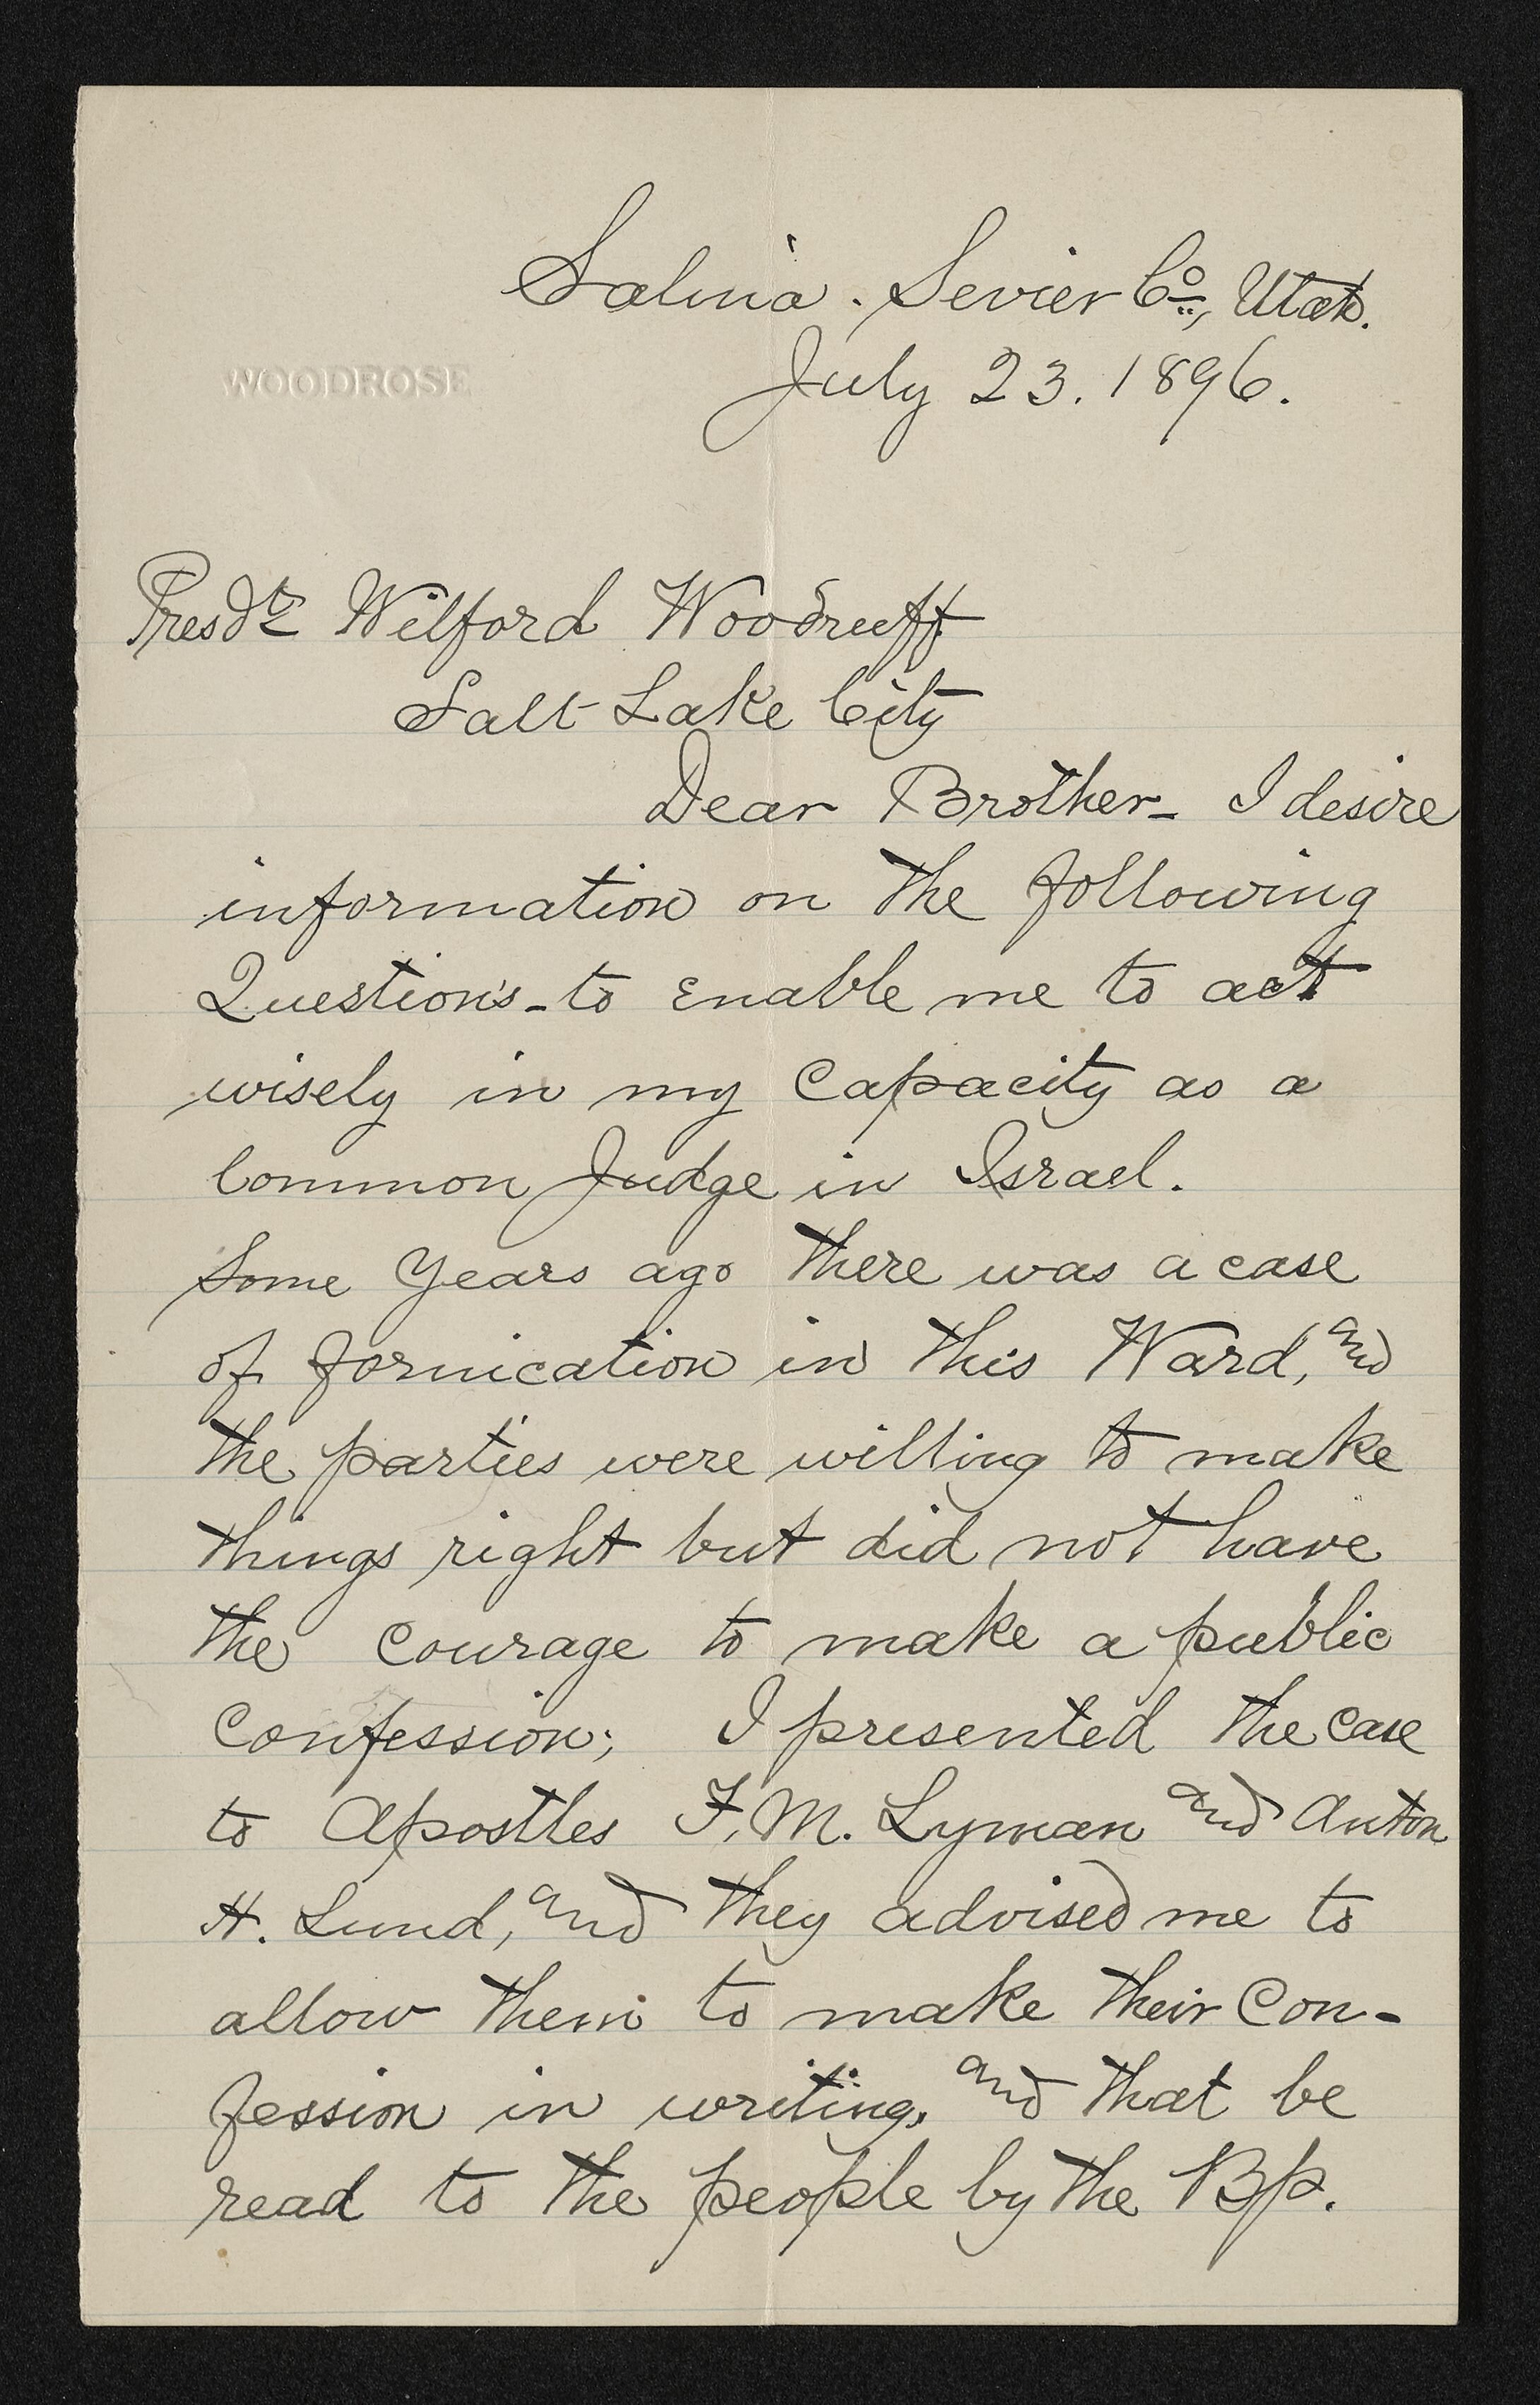 Salina. Sevier Co., Utah.
July 23. 1896.
WOODROSE
Presdt Wilford Woodruff
Salt Lake City
Dear Brother- I desire
information on the following
Questions-to enable me to act
wisely in my Capacity as a
Common Judge in Israel.
Some Years ago there was a case
of fornication in this Ward, and
the parties were willing to make
things right but did not have
the Courage to make a public
Confession; I presented the Case
to Apostles F. M. Lyman and Anton
H. Lund, and they advised me to
allow them to make their Con-
fession in writing, and that be
read to the people by the Bp.